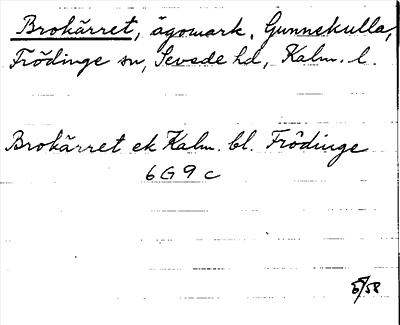 Brokärret, ägomark, Gunnekulla,
Frödinge sn, Sevede hd, Kalm. l.
Brokärret ek Kalm. bl. Frödinge
6G9c
5/58